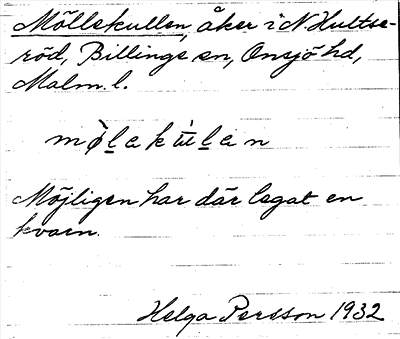 Möllekullen, åker i N. Hultse-
röd, Billinge sn, Onsjö hd,
Malm. l.
Möjligen har där legat en
kvarn.
Helga Persson 1932